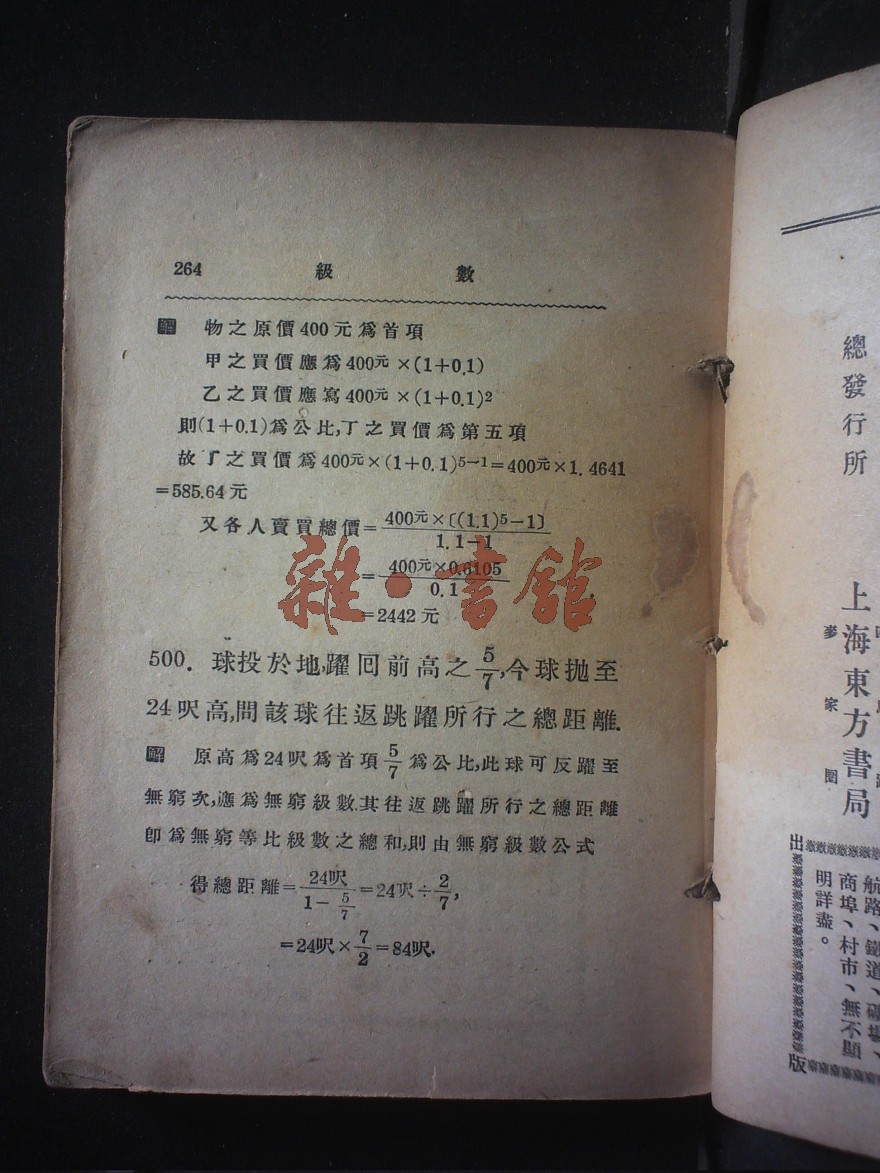 264 級 數
解 物之原價400元為首項
甲之買價應為400元×(1+0.1)
乙之買價應寫400元×(1+0.1)²
則(1+0.1)為公比,丁之買價為第五項
故丁之買價為400元×(1+0.1)⁵⁻¹=400元×1.4641
=585.64元
又各人賣買總價=400元×〔(1.1)⁵-1〕/1.1-1
=400元×0.6105/0.1
=2442元
雜·書館
500. 球投於地,躍囘前高之5/7,今球拋至
24呎高,問該球往返跳躍所行之總距離.
解 原高為24呎為首項5/7為公比,此球可反躍至
無窮次,應為無窮級數.其往返跳躍所行之總距離
卽為無窮等比級數之總和,則由無窮級數公式
得總距離=24呎/1-5/7=24呎÷2/7,
=24呎×7/2=84呎.
總發行所
上海東方書局
麥家圈
出版
航路、鐵道、
商埠、村市、無不顯
明詳盡。